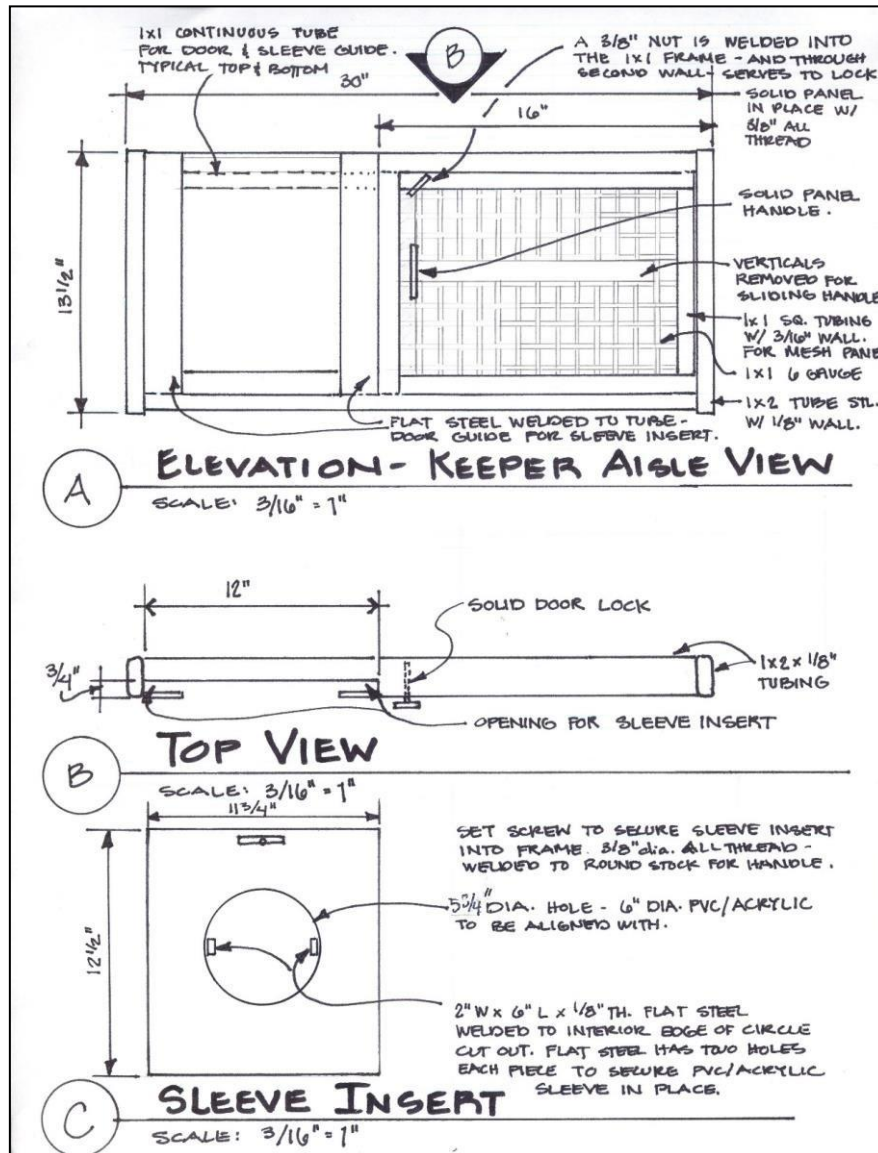 1x1 CONTINUOUS TUBE
FOR DOOR & SLEEVE GUIDE.
TYPICAL TOP & BOTTOM
B
A 3/8" NUT IS WELDED INTO
THE 1x1 FRAME - AND THROUGH
SECOND WALL - SERVES TO LOCK
SOLID PANEL
IN PLACE W/
3/8" ALL
THREAD
30"
16"
13 1/2"
SOLID PANEL
HANDLE.
VERTICALS
REMOVED FOR
SLIDING HANDLE
1x1 SQ. TUBING
W/ 3/16" WALL.
FOR MESH PANE
1x1 6 GAUGE
1x2 TUBE STL.
W/ 1/8" WALL.
FLAT STEEL WELDED TO TUBE-
DOOR GUIDE FOR SLEEVE INSERT.
A
ELEVATION- KEEPER AISLE VIEW
SCALE: 3/16" = 1"
12"
SOLID DOOR LOCK
3/4"
1x2 x 1/8"
TUBING
OPENING FOR SLEEVE INSERT
B
TOP VIEW
SCALE: 3/16" = 1"
11 3/4"
12 1/2"
SET SCREW TO SECURE SLEEVE INSERT
INTO FRAME. 3/8" dia. ALL THREAD -
WELDED TO ROUND STOCK FOR HANDLE.
5 3/4" DIA. HOLE - 6" DIA. PVC/ACRYLIC
TO BE ALIGNED WITH.
2" W x 6" L x 1/8" TH. FLAT STEEL
WELDED TO INTERIOR EDGE OF CIRCLE
CUT OUT. FLAT STEEL HAS TWO HOLES
EACH PIECE TO SECURE PVC/ACRYLIC
SLEEVE IN PLACE.
C
SLEEVE INSERT
SCALE: 3/16" = 1"